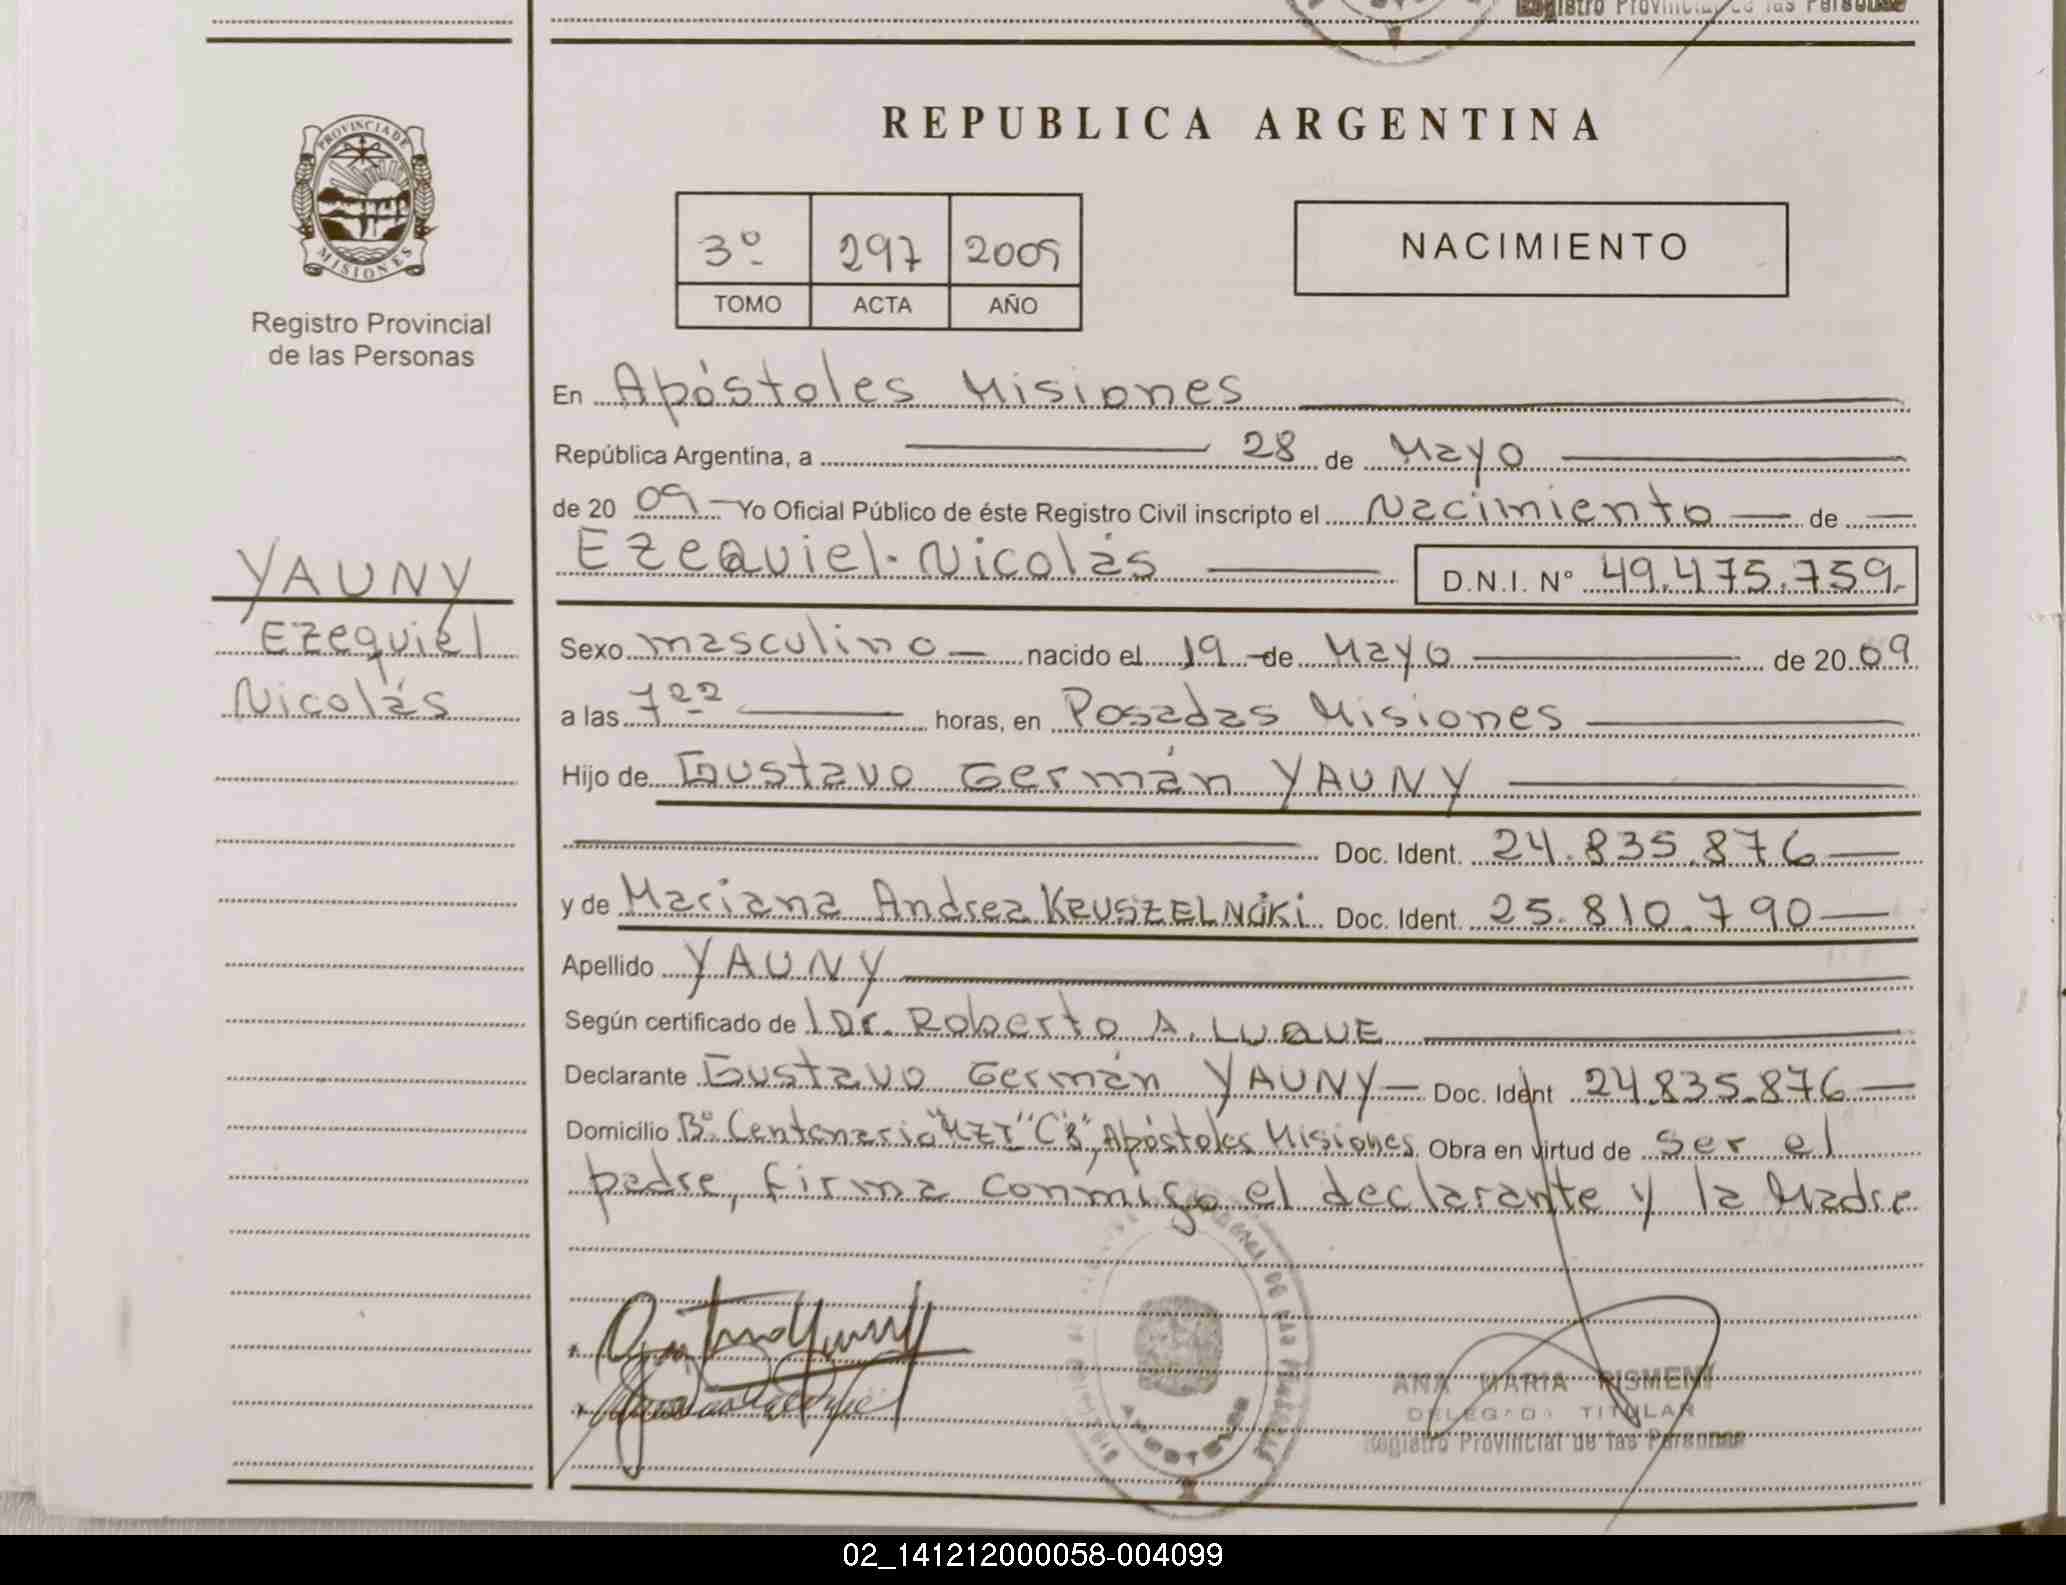 Registro Provincial de las Personas
PROVINCIA DE
MISIONES
Registro Provincial
de las Personas
REPUBLICA ARGENTINA
3º 297 2009
TOMO ACTA AÑO
NACIMIENTO
En Apóstoles Misiones
República Argentina, a 28 de Mayo
de 20 09 Yo Oficial Público de éste Registro Civil inscripto el Nacimiento de
Ezequiel Nicolás D.N.I. Nº 49.475.759.-
YAUNY
Ezequiel
Nicolás
Sexo masculino nacido el 19 de Mayo de 20 09
a las 7 horas, en Posadas Misiones
Hijo de Gustavo Germán YAUNY
Doc. Ident. 24.835.876
y de Mariana Andrea Doc. Ident. 25.810.790
Apellido YAUNY
Según certificado de Dr. Roberto A. LUQUE
Declarante Gustavo Germán YAUNY Doc. Ident 24.835.876
Domicilio Bº Centenario Apóstoles Misiones Obra en virtud de ser el
padre, firma conmigo el declarante y la Madre
APOSTOLES
ANA MARIA PISMENI
DELEGADA TITULAR
Registro Provincial de las Personas
02_141212000058-004099